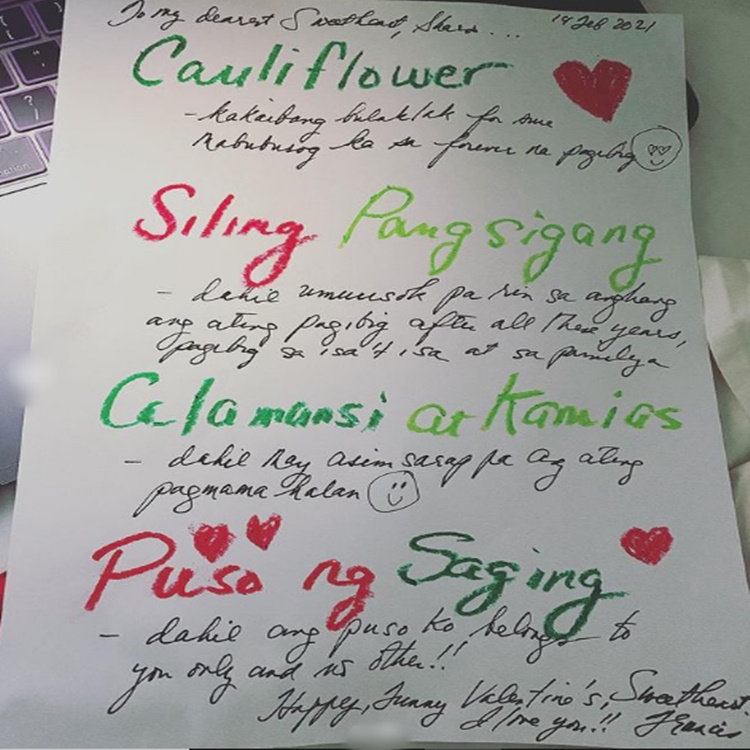 To my dearest Sweetheart, Sharon... 14 Feb 2021
Cauliflower
- kakaibang bulaklak for sure
mabubusog ka sa forever na pagibig
Siling Pangsigang
- dahil umuusok pa rin sa anghang
ang ating pagibig after all these years,
pagibig sa isa't isa at sa pamilya
Calamansi at Kamias
- dahil may asim sarap pa ang ating
pagmamahalan
Puso ng Saging
- dahil ang puso ko belongs to
you only and no other!!
Happy, Funny Valentine's, Sweetheart.
I love you!! Francis